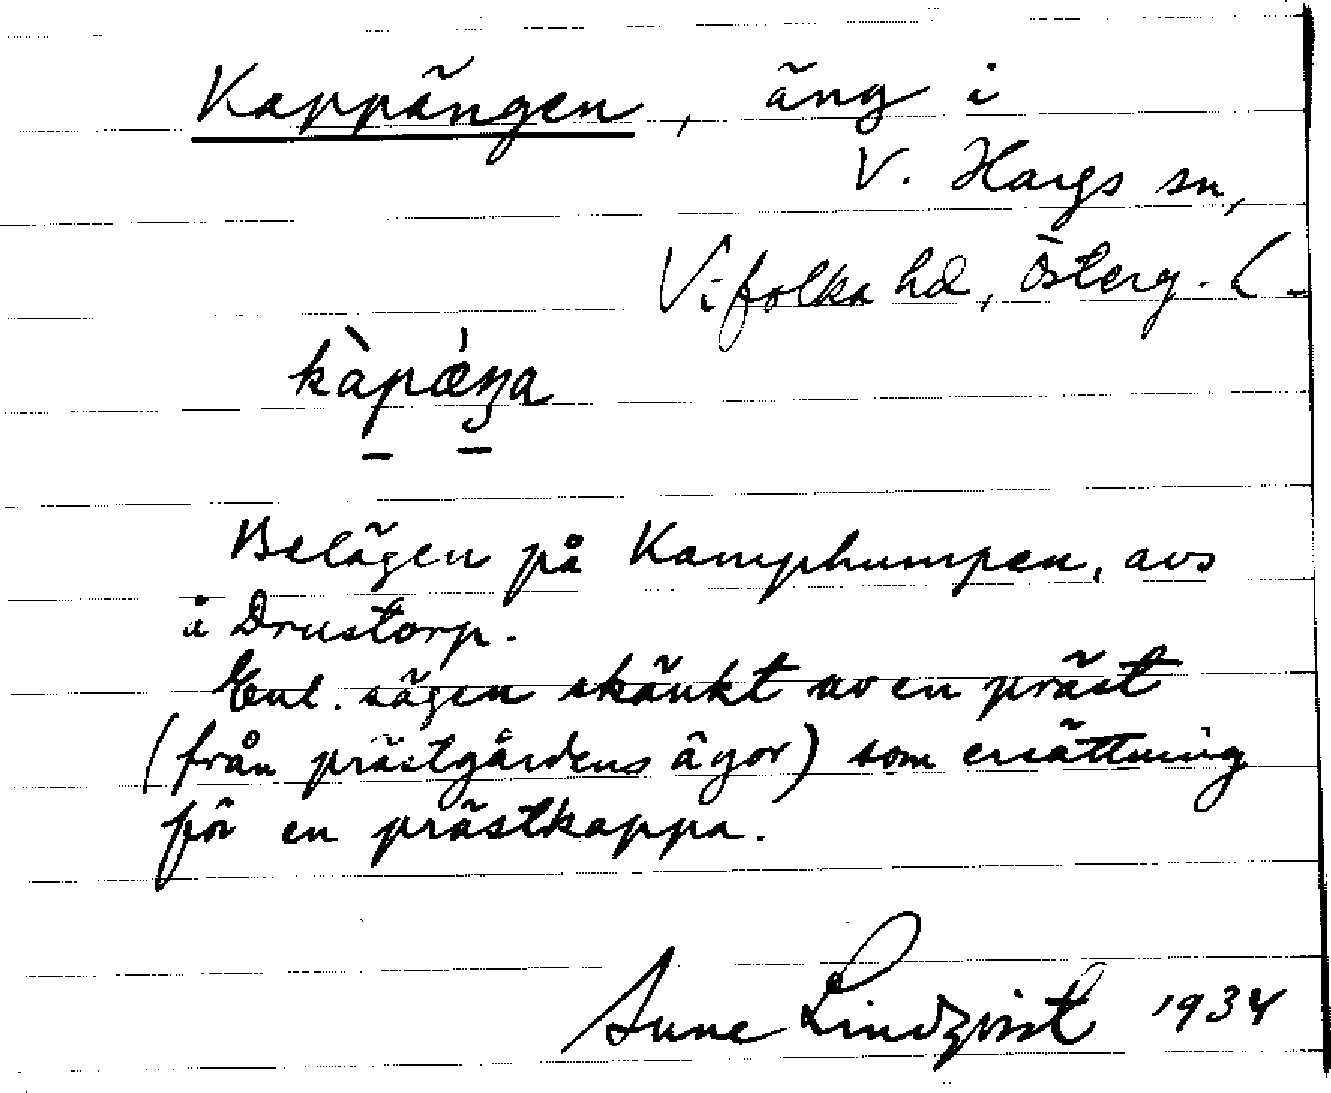 Kappängen, äng i
V. Hargs sn,
Vifolka hd, Österg. (-
kàpǽŋa
Belägen på Kamphumpen, avs
å Drustorp.
Enl. sägen skänkt av en präst
(från prästgårdens ägor) som ersättning
för en prästkappa.
Sune Lindqvist 1934